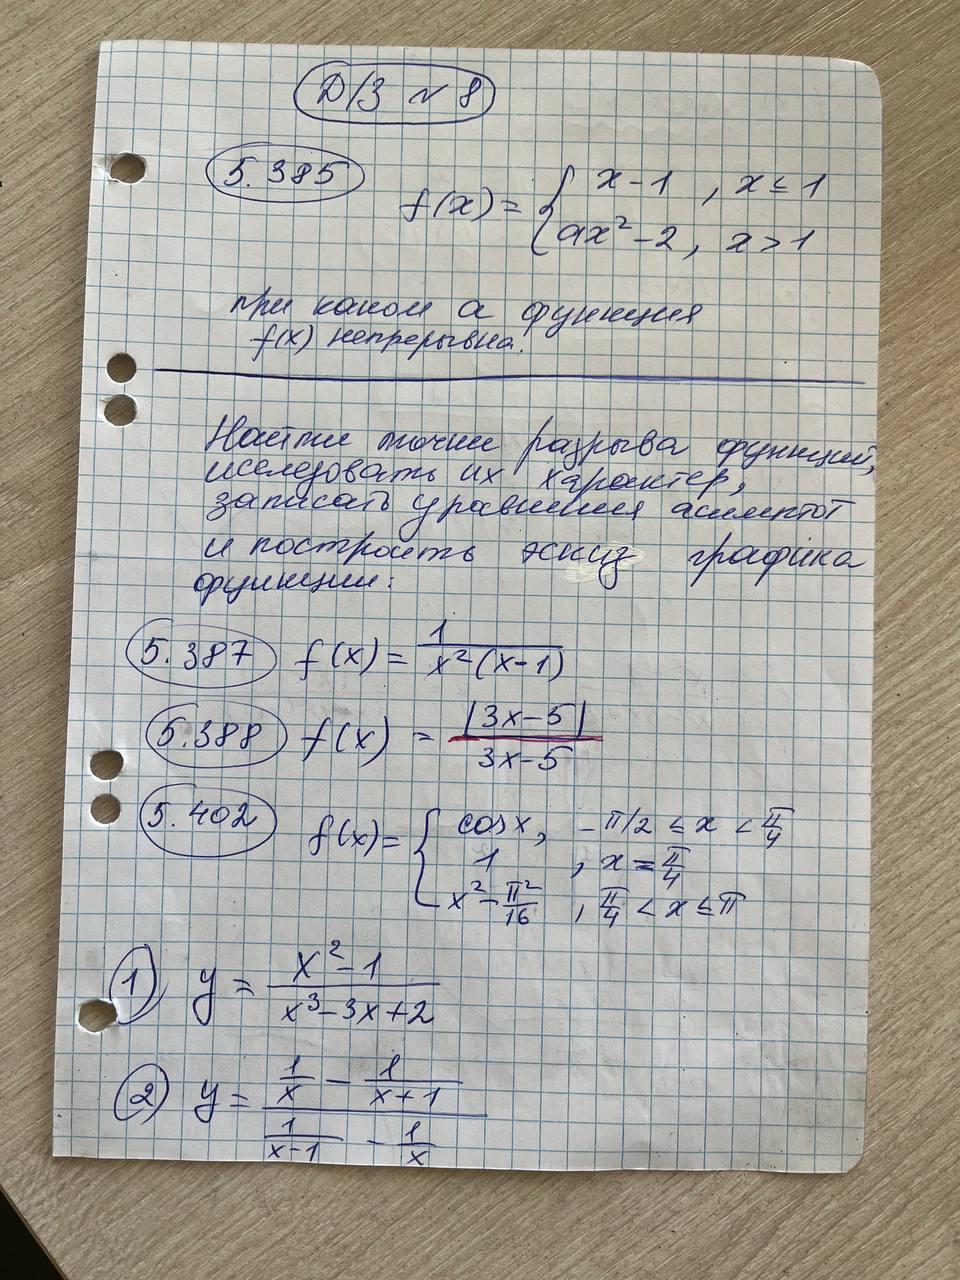 Д/З № 8
5.385 f(x) = { x-1 , x ≤ 1
ax² - 2, x > 1
при каком а функция
f(x) непрерывна.
Найти точки разрыва функций,
исследовать их характер,
записать уравнения асимптот
и построить эскиз графика
функции:
5.387 f(x) = 1 / x²(x-1)
5.388 f(x) = |3x-5| / 3x-5
5.402 f(x) = { cosx, -π/2 ≤ x < π/4
1 , x = π/4
x² - π²/16 , π/4 < x ≤ π
1) y = x²-1 / x³-3x+2
2) y = 1/x - 1/x+1 / 1/x-1 - 1/x